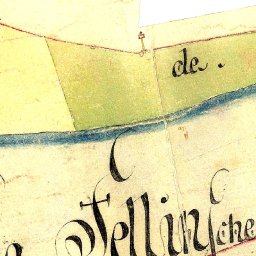 de
Fellinsche